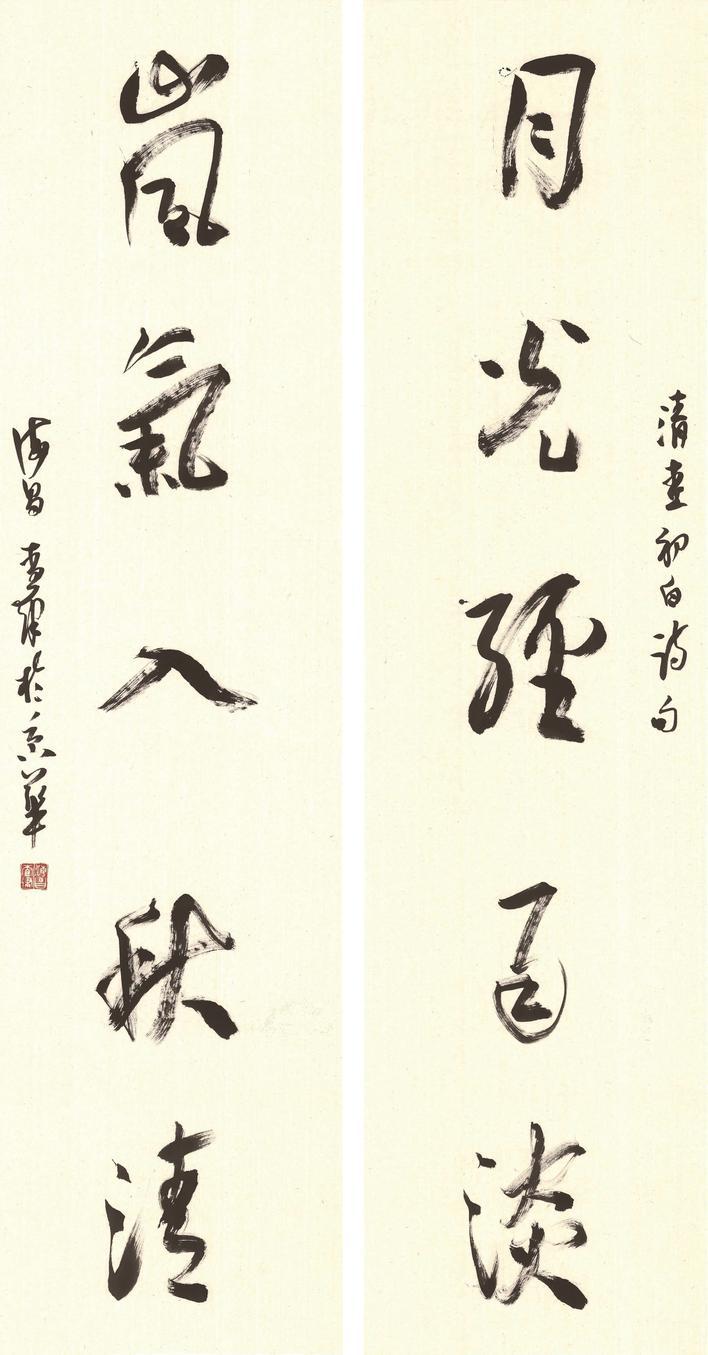 清查初白詩句
月光經夏淡
嵐氣入秋清
海昌查於京華